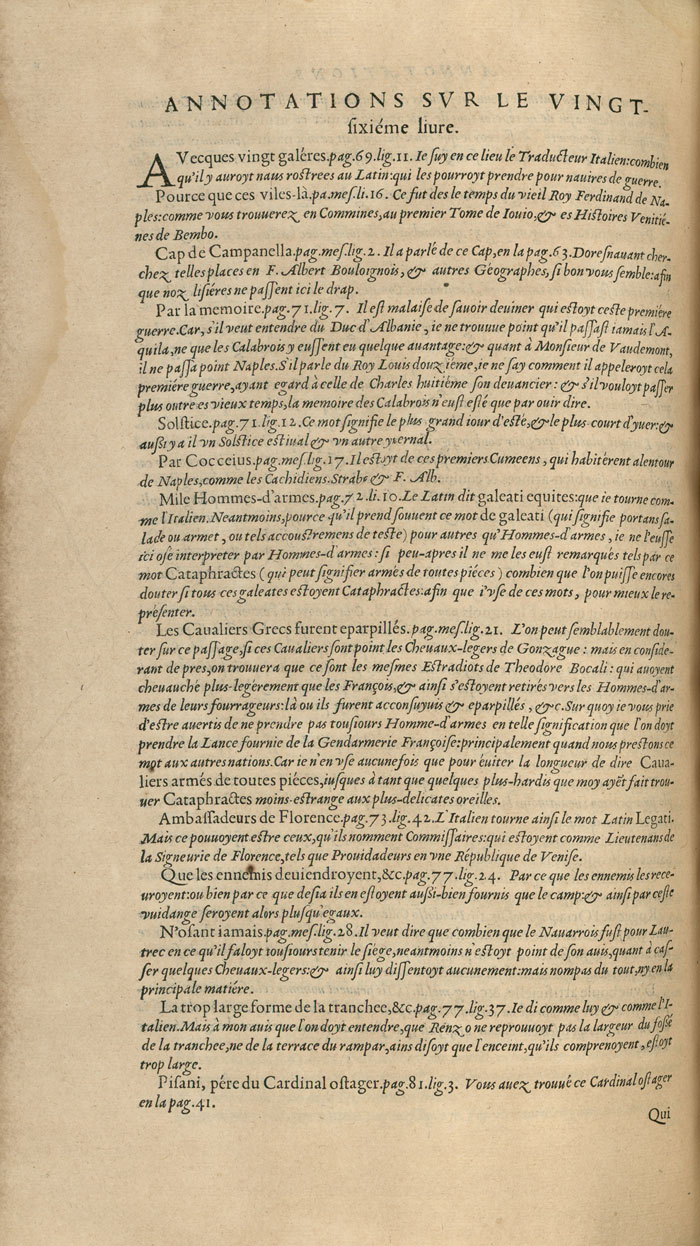 ANNOTATIONS SVR LE VINGT-
ſixiéme liure.
AVecques vingt galéres.pag.69.lig.11. Ie ſuy en ce lieu le Traducteur Italien:combien
qu'il y auroyt naus roſtrees au Latin:qui les pourroyt prendre pour nauires de guerre.
Pource que ces viles-là.pa.meſ.li.16. Ce fut des le temps du vieil Roy Ferdinand de Na-
ples:comme vous trouuerez en Commines,au premier Tome de Iouio,& es Hiſtoires Venitié-
nes de Bembo.
Cap de Campanella.pag.meſ.lig.2. Il a parlé de ce Cap,en la pag.63.Doreſnauant cher-
chez telles places en F. Albert Bouloignois, & autres Géographes, ſi bon vous ſemble:afin
que noz liſiéres ne paſſent ici le drap.
Par la memoire.pag.71.lig.7. Il eſt malaiſe de ſauoir deuiner qui eſtoyt ceſte premiére
guerre.Car,s'il veut entendre du Duc d'Albanie, ie ne trouue point qu'il paſſaſt iamais l'A-
quila,ne que les Calabrois y euſſent eu quelque auantage:& quant à Monſieur de Vaudemont,
il ne paſſa point Naples.S'il parle du Roy Louis douzième,ie ne ſay comment il appeleroyt cela
premiére guerre,ayant egard à celle de Charles huitiéme ſon deuancier: & s'il vouloyt paſſer
plus outre es vieux temps,la memoire des Calabrois n'euſt eſté que par ouir dire.
Solſtice.pag.71.lig.12.Ce mot ſignifie le plus grand iour d'eſté,& le plus court d'yuer:&
auſsi y a il vn Solſtice eſtiual & vn autre yuernal.
Par Cocceius.pag.meſ.lig.17.Il eſtoyt de ces premiers Cumeens, qui habitérent alentour
de Naples,comme les Cachidiens.Strabo & F. Alb.
Mile Hommes-d'armes.pag.72.li.10.Le Latin dit galeati equites:que ie tourne com-
me l'Italien.Neantmoins,pource qu'il prend ſouuent ce mot de galeati (qui ſignifie portans ſa-
lade ou armet, ou tels accouſtremens de teſte) pour autres qu'Hommes-d'armes, ie ne l'euſſe
ici oſé interpreter par Hommes-d'armes: ſi peu-apres il ne me les euſt remarqués tels par ce
mot Cataphractes (qui peut ſignifier armés de toutes piéces) combien que l'on puiſſe encores
douter ſi tous ces galeates eſtoyent Cataphractes:afin que i'vſe de ces mots, pour mieux le re-
préſenter.
Les Caualiers Grecs furent eparpillés.pag.meſ.lig.21. L'on peut ſemblablement dou-
ter ſur ce paſſage,ſi ces Caualiers ſont point les Cheuaux-legers de Gonzague: mais en conſide-
rant de pres,on trouuera que ce ſont les meſmes Eſtradiots de Theodore Bocali: qui auoyent
cheuauché plus-legérement que les François,& ainſi s'eſtoyent retirés vers les Hommes-d'ar-
mes de leurs fourrageurs:là ou ils furent acconſuyuis & eparpillés, &c.Sur quoy ie vous prie
d'eſtre auertis de ne prendre pas touſiours Homme-d'armes en telle ſignification que l'on doyt
prendre la Lance fournie de la Gendarmerie Françoiſe:principalement quand nous preſtons ce
mot aux autres nations.Car ie n'en vſe aucunefois que pour éuiter la longueur de dire Caua-
liers armés de toutes piéces,iuſques à tant que quelques plus-hardis que moy ayēt fait trou-
uer Cataphractes moins-eſtrange aux plus-delicates oreilles.
Ambaſſadeurs de Florence.pag.73.lig.42.L'Italien tourne ainſi le mot Latin Legati.
Mais ce pouuoyent eſtre ceux,qu'ils nomment Commiſſaires:qui eſtoyent comme Lieutenans de
la Signeurie de Florence,tels que Prouidadeurs en vne République de Veniſe.
Que les ennemis deuiendroyent,&c.pag.77.lig.24. Par ce que les ennemis les rece-
uroyent:ou bien par ce que deſia ils en eſtoyent auſsi-bien fournis que le camp:& ainſi par ceſte
vuidange ſeroyent alors pluſqu'egaux.
N'oſant iamais.pag.meſ.lig.28.Il veut dire que combien que le Nauarrois fuſt pour Lau-
trec en ce qu'il faloyt touſiours tenir le ſiége,neantmoins n'eſtoyt point de ſon auis,quant à caſ-
ſer quelques Cheuaux-legers:& ainſi luy diſſentoyt aucunement:mais nompas du tout,ny en la
principale matiére.
La trop large forme de la tranchee,&c.pag.77.lig.37.Ie di comme luy & comme l'I-
talien.Mais à mon auis que l'on doyt entendre,que Rénzo ne reprouuoyt pas la largeur du foſſé
de la tranchee,ne de la terrace du rampar,ains diſoyt que l'enceint,qu'ils comprenoyent,eſtoyt
trop large.
Piſani, pére du Cardinal oſtager.pag.81.lig.3. Vous auez trouué ce Cardinal oſtager
en la pag.41.
Qui